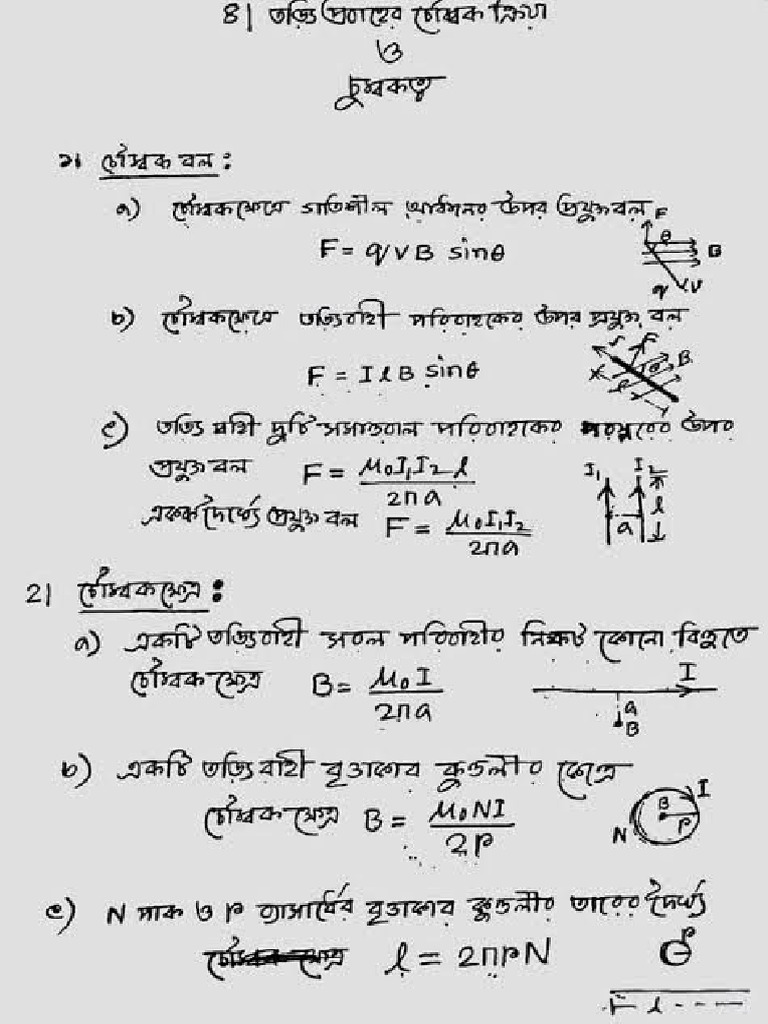 ৪| তড়িৎ প্রবাহের চৌম্বক ক্রিয়া
ও
চুম্বকত্ব
১। চৌম্বক বল :
a) চৌম্বকক্ষেত্রে গতিশীল আধানের উপর প্রযুক্ত বল
F = qVB sinθ
F θ B q V
b) চৌম্বকক্ষেত্রে তড়িৎবাহী পরিবাহকের উপর প্রযুক্ত বল
F = I l B sinθ
F θ B l
c) তড়িৎ বাহী দুটি সমান্তরাল পরিবাহকের পরস্পরের উপর
প্রযুক্ত বল F = μ₀I₁I₂l / 2πa
I₁ I₂ a l
একক দৈর্ঘ্যে প্রযুক্ত বল F = μ₀I₁I₂ / 2πa
2| চৌম্বকক্ষেত্র :
a) একটি তড়িৎবাহী সরল পরিবাহীর নিকট কোনো বিন্দুতে
চৌম্বকক্ষেত্র B = μ₀I / 2πa
I a B
b) একটি তড়িৎবাহী বৃত্তাকার কুন্ডলীর কেন্দ্রে
চৌম্বকক্ষেত্র B = μ₀NI / 2r
B I r N
c) N পাক ও r ব্যাসার্ধের বৃত্তাকার কুন্ডলীর তারের দৈর্ঘ্য
l = 2πrN
r
l